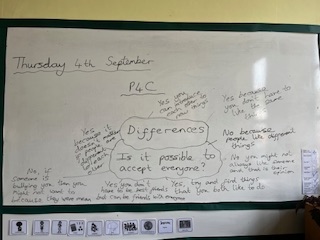 Thursday 4th September
P4C
Yes you
can introduce
each other to
things
Yes because
you don't have to
like the
same
Yes
because it
doesn't matter
if people
different
Differences
No because
people like different
things
Is it possible to
accept everyone?
No you might not
always like someone
and that is
No, if
someone is
bullying you then you
might not want to
because they were mean
Yes you don't
have to be best friends
but can be friends with everyone
Yes, try and find things
that you both like to do